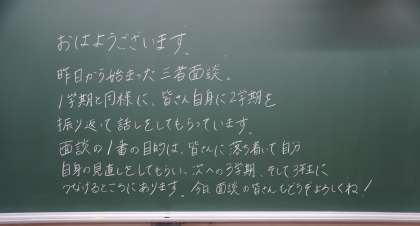 おはようございます。
昨日から始まった三者面談。
1学期と同様に、皆さん自身に2学期を
振り返って話しをしてもらっています。
面談の1番の目的は、皆さんに落ち着いて自分
自身の見直しをしてもらい、次への3学期、そして3年生に
つなげるところにあります。今日面談の皆さんもどうぞよろしくね!